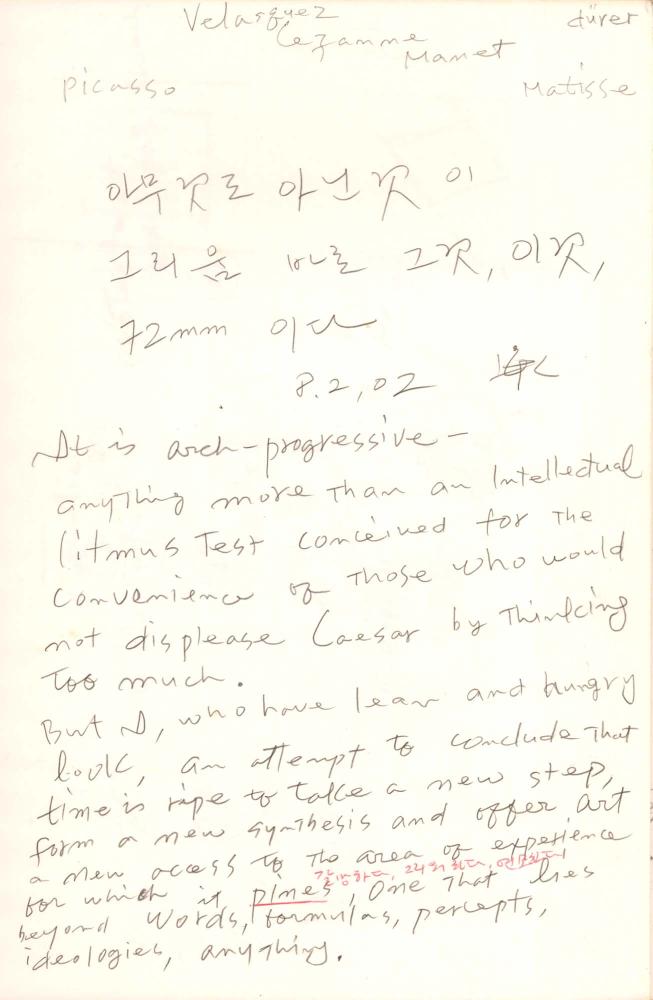 Velasquez
dürer
Cezanne
Manet
picasso
Matisse
아무것도 아닌것 이
그리움 바로 그것, 이것,
72mm 이다
8.2,02
It is arch-progressive-
anyThing more Than an Intellectual
litmus Test conceived for The
convenience of Those who would
not displease Caesar by Thinking
Too much.
But I, who have lean and hungry
look, an attempt to conclude That
time is ripe to take a new step,
form a new synthesis and offer art
a new access to The area of experience
갈망하다, 그리워하다, 연모하다
for which it pines, One That lies
beyond words, formulas, percepts,
ideologies, anyThing.